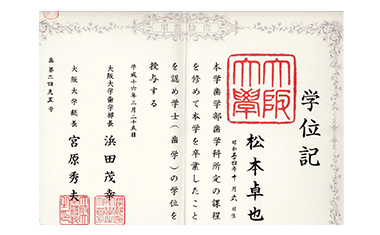 学位記
大阪大学
松本卓也
昭和五四年十月六日生
本学歯学部歯学科所定の課程
を修めて本学を卒業したこと
を認め学士(歯学)の学位を
授与する
平成十六年三月二十五日
大阪大学歯学部長 浜田茂幸
大阪大学総長 宮原秀夫
歯第二四九五号